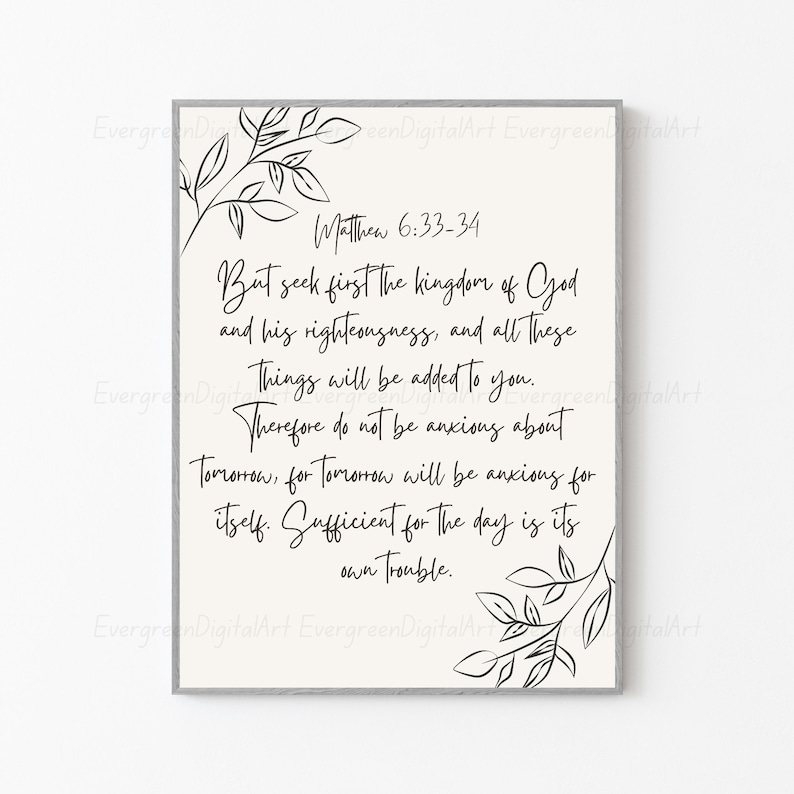 EvergreenDigitalArt EvergreenDigitalArt EvergreenDigitalArt
Matthew 6:33-34
But seek first the kingdom of God
and his righteousness, and all these
things will be added to you.
EvergreenDigitalArt EvergreenDigitalArt EvergreenDigitalArt
Therefore do not be anxious about
tomorrow, for tomorrow will be anxious for
itself. Sufficient for the day is its
own trouble.
EvergreenDigitalArt EvergreenDigitalArt EvergreenDigitalArt